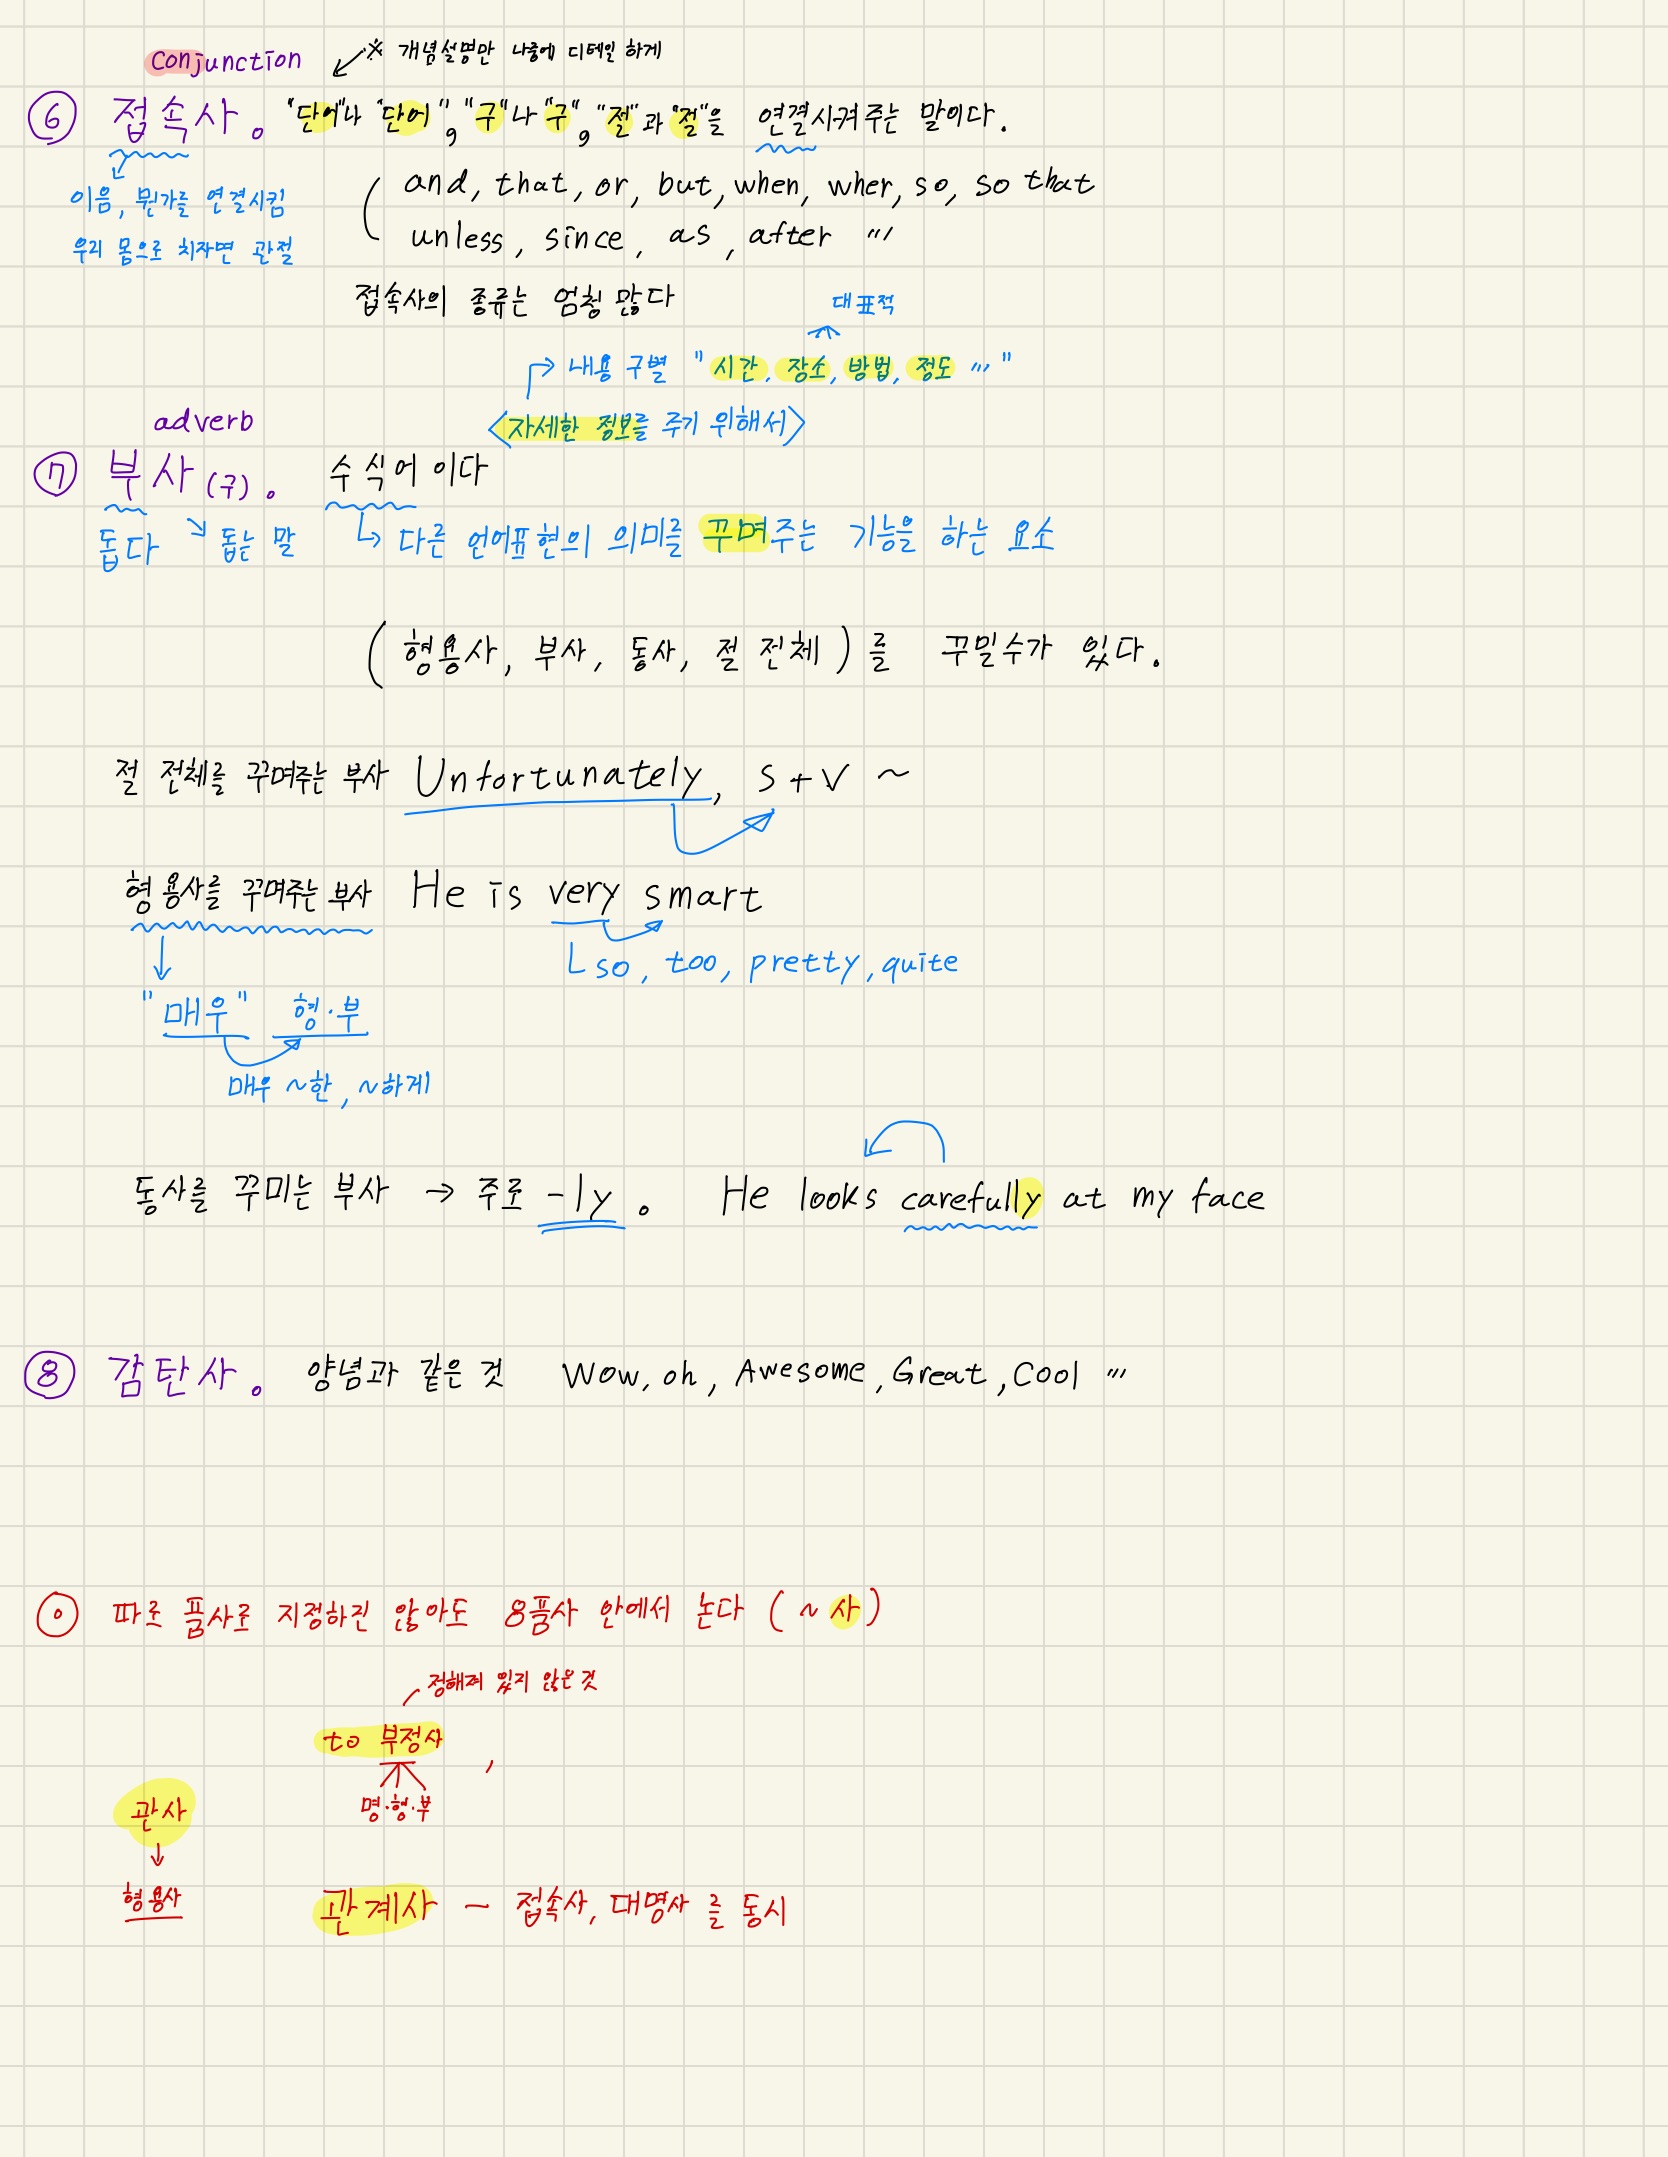 conjunction ※ 개념설명만 나중에 디테일 하게
⑥ 접속사. "단어"나 "단어", "구"나 "구", "절"과 "절"을 연결시켜주는 말이다.
이음, 뭔가를 연결시킴
우리 몸으로 치자면 관절
( and, that, or, but, when, wher, so, so that
unless, since, as, after ...
접속사의 종류는 엄청 많다
대표적
→ 내용 구별 "시간, 장소, 방법, 정도 ..."
<자세한 정보를 주기 위해서>
adverb
⑦ 부사(구). 수식어이다
돕다 ↘ 돕는 말 ↳ 다른 언어표현의 의미를 꾸며주는 기능을 하는 요소
(형용사, 부사, 동사, 절 전체)를 꾸밀수가 있다.
절 전체를 꾸며주는 부사 Unfortunately, S+V ~
형용사를 꾸며주는 부사 He is very smart
so, too, pretty, quite
"매우" 형·부
매우 ~한, ~하게
동사를 꾸미는 부사 → 주로 -ly. He looks carefully at my face
⑧ 감탄사. 양념과 같은 것 Wow, oh, Awesome, Great, Cool ...
⓪ 따로 품사로 지정하진 않아도 8품사 안에서 논다 (~사)
정해져 있지 않은 것
to 부정사 ,
명·형·부
관사
↓
형용사
관계사 - 접속사, 대명사를 동시